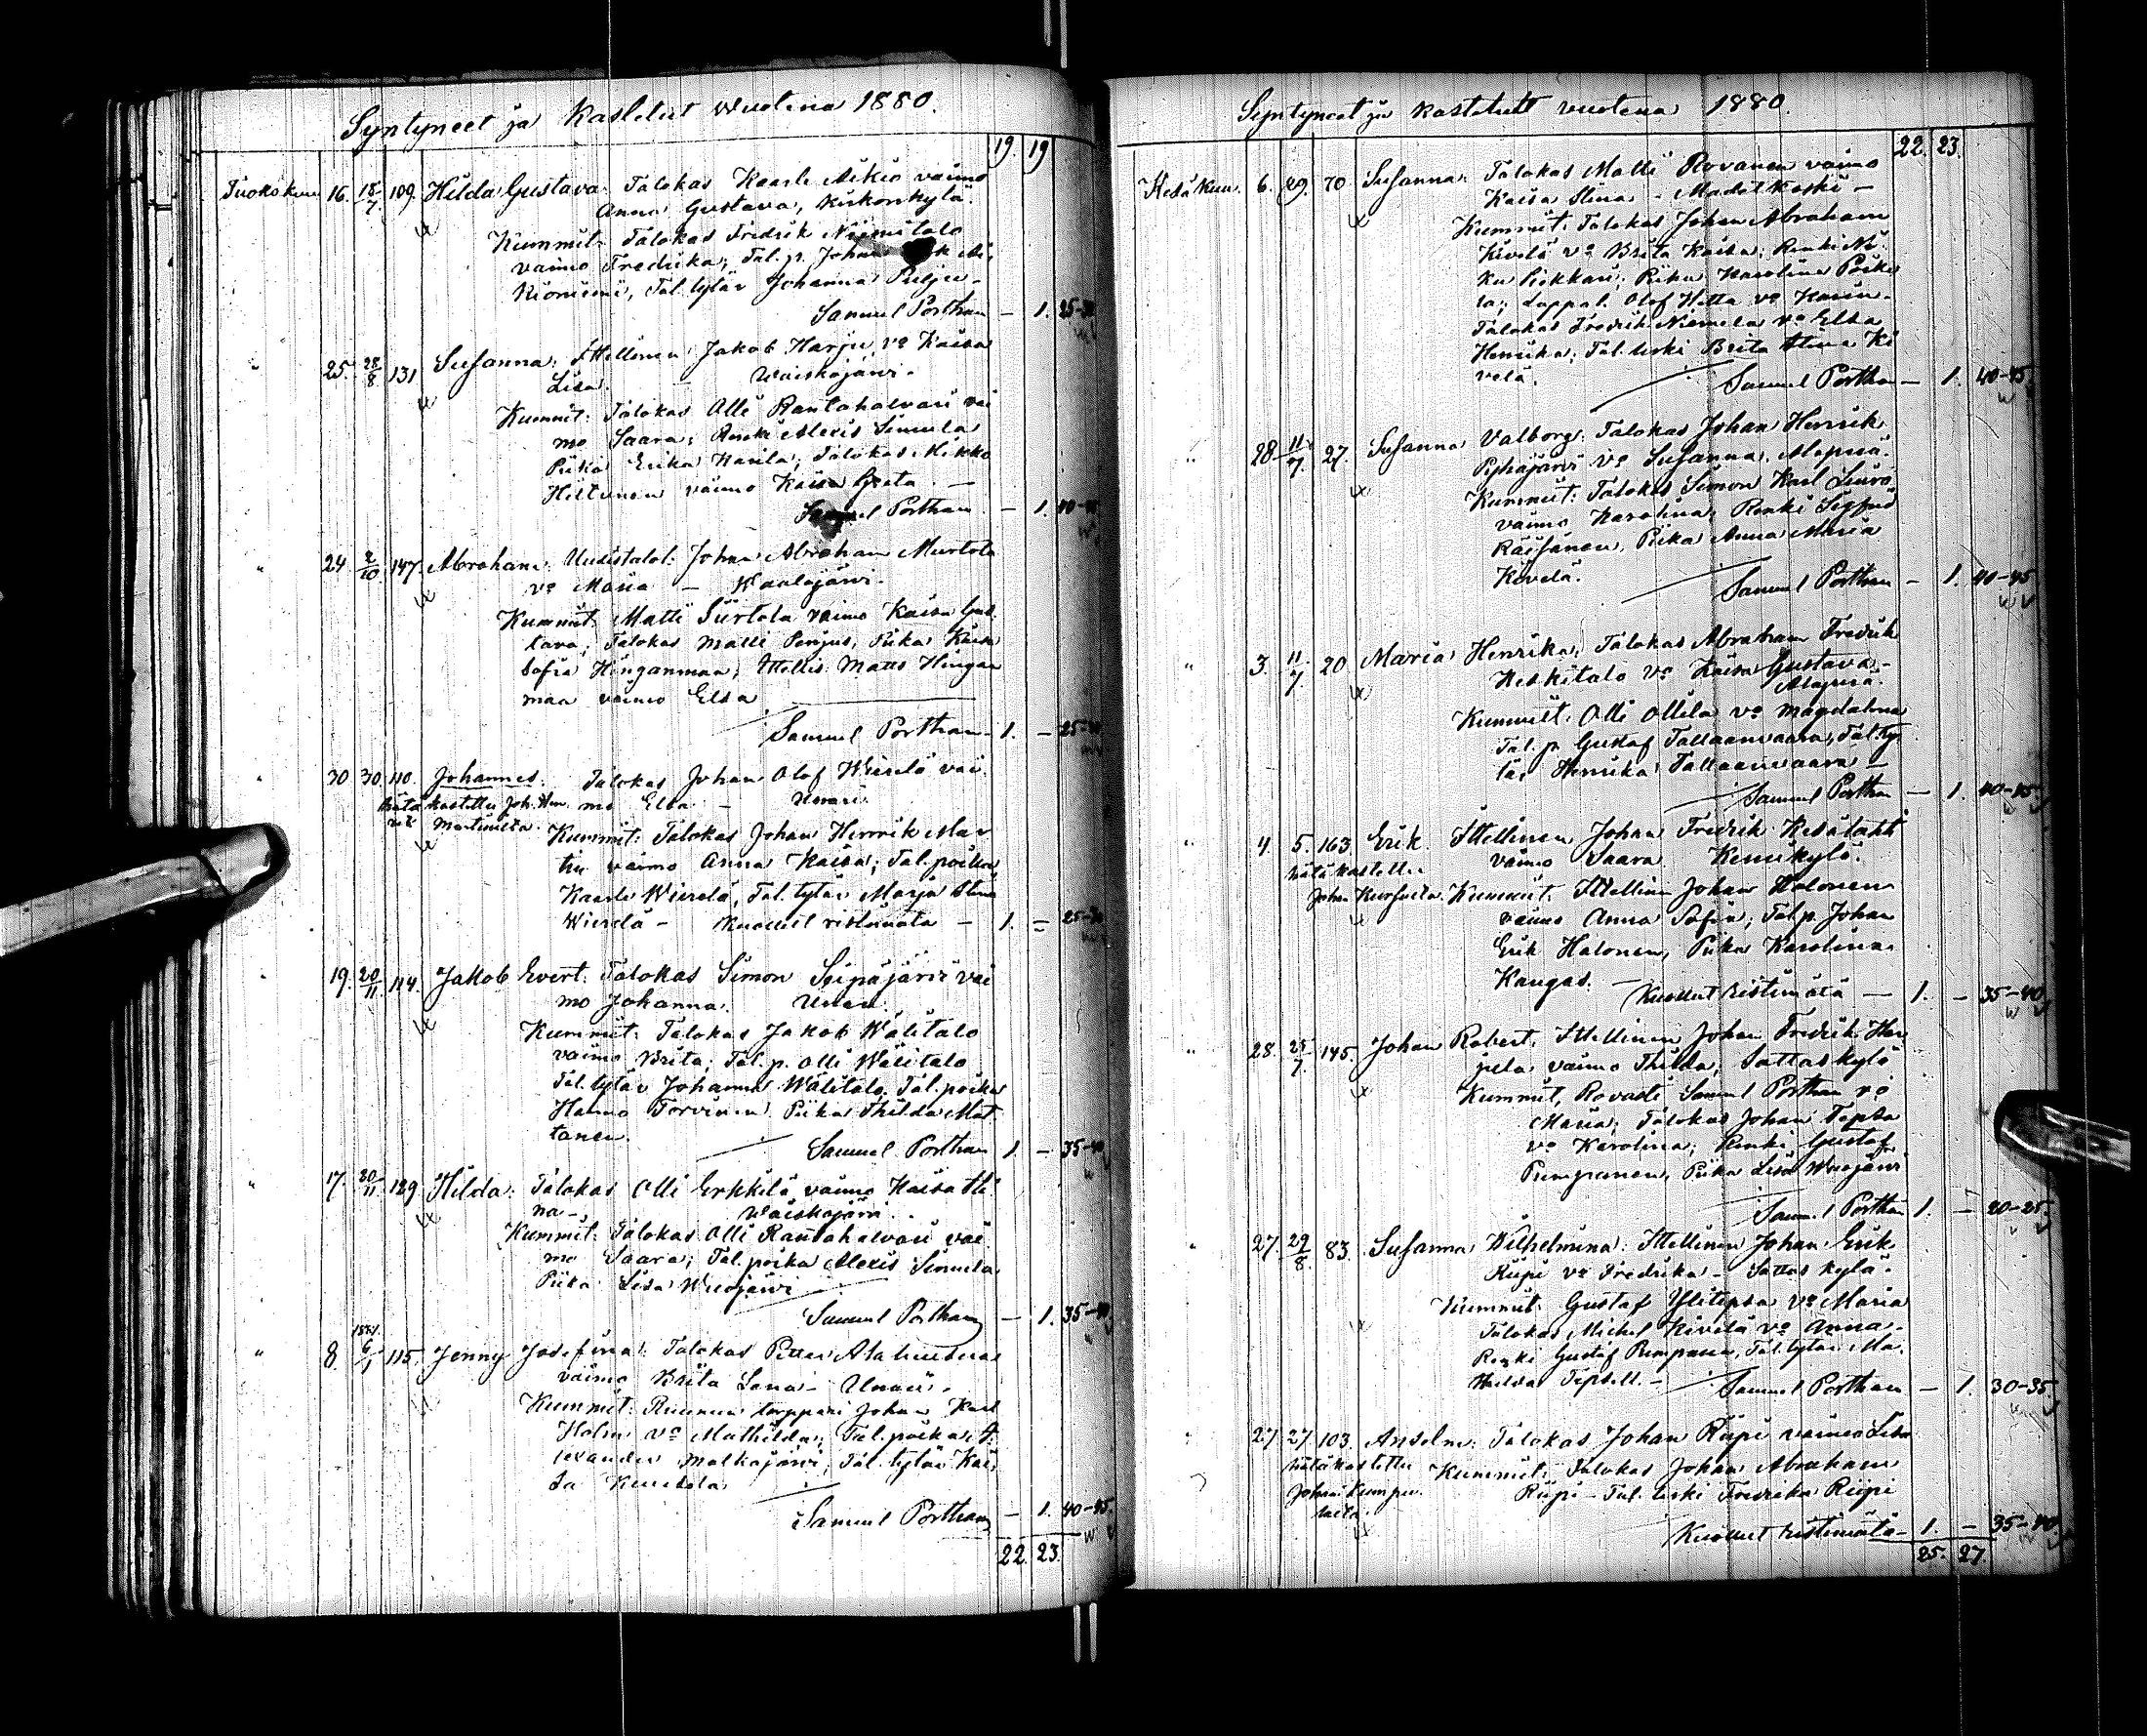 Syntyneet ja Kastetut vuotena 1880.
19. 19
Tuokokuu 16. 18/7. 109. Hilda Gustava: Talokas Kaarle Aikio vaimo
Anna Gustava, Kirkonkylä.
Kummit: Talokas Fredrik Niemitalo
vaimo Fredrika; Tal. p. Johan
kioniemi, Tal. tytär Johanna Pulju -
Samuel Porthan - 1. 25-30
" 25. 28/8. 131 Susanna: Ittellinen Jakob Harju vo Kaisa
Lisa. Waiskojärwi.
Kummit: Talokas Olli Rantahalvari vai
mo Saara; Renki Alexis Sinnula
Piika Erika Karila; Talokas Mikko
Hiltunen vaimo Kaisa Greta. -
Samuel Porthan - 1. 40-45
" 24. 2/10. 147. Abraham: Uudistalol: Johan Abraham Murtola
vo Maria - Kaalajärvi.
Kummit: Matti Siirtola vaimo Kaisa Gus
tava; Talokas Matti Perjus, Piika Kaisa
Sofia Hinganmaa; Ittellis. Matts Hingan
maa vaimo Elsa
Samuel Porthan - 1. - 25-30
" 30 30. 40. Johannes. Talokas Johan Olof Wierelä vai
hätä kastettu Joh. Hen mo Elsa - Unari.
rik Martimilta. Kummit: Talokas Johan Henrik Mar
tin vaimo Anna Kaisa; Tal. poika
Kaarle Wierelä, Tal. tytär Marja Stina
Wierelä - Kuollut ristimätä - 1. - 25-30
19. 20/11. 114. Jakob Evert: Talokas Simon Seipäjärvi vai
mo Johanna. Unari.
Kummit: Talokas Jakob Wälitalo
vaimo Brita; Tal. p. Olli Wälitalo
Tal. tytär Johanna Wälitalo. Tal. poika
Hannu Torvinen. Piika Thilda Mat
tanen.
Samuel Porthan 1. - 35-40
" 17. 20/11. 129 Hilda: Talokas Olli Erkkilä vaimo Kaisa Sti
na -, Waiskojärvi.
Kummit: Talokas Olli Rantahalvari vai
mo Saara; Tal. poika Alexis Sinnula
Piika Lisa Wuojärvi
Samuel Porthan - 1. 35-40
" 8. 1881. 6/1 115. Jenny Josefina: Talokas Petter Alahuhtas
vaimo Brita Lena - Unari.
Kummit: Ruunun torppari Johan Karl
Holm vo Mathilda; Tal. poika A
lexander Molkojärvi; Tal. tytär Kai
sa Kuusela
Samuel Porthan - 1. 40-45.
22. 23.
Syntyneet ja kastetutt vuotena 1880
22. 23.
Kesäkuu. 6. 29. 70 Susanna: Talokas Matti Rovanen vaimo
Kaisa Stina - Madet Koski -
Kummit: Talokas Johan Abraham
Kivelä vo Brita Kaisa; Renki Nii
ku Pirkkari; Piika Karolina Poike
la; Lappal. Olof Hetta vo Karin.
Talokas Fredrik Niemelä vo Elsa
Henrika; Tal. leski Brita Stina Ki
velä.
Samuel Porthan - 1. 40-45.
" 28 11/7. 27. Susanna Valborg: Talokas Johan Henrik
Pyhäjärvi vo Susanna. Alapää.
Kummiit: Talokas Simon Karl Siurö
vaimo Karolina; Renki Sigfrid
Räisänen, Piika Anna Maria
Kivelä.
Samuel Porthan - 1. 40-45
" 3. 11/7. 20 Maria Henrika; Talokas Abraham Fredrik
Keskitalo vo Kaisa Gustava -
Alapää.
Kummiit: Olli Ollila vo Magdalena
Tal. p. Gustaf Tallaanvaara, Tal. ty
tär Henrika Tallaanvaara -
Samuel Porthan - 1. 40-45
" 4. 5. 163 Erik Ittellinen Johan Fredrik Kesälahti
hätä kastettu vaimo Saara Kemikylä.
Johan Kummit: Ittellinen Johan Halonen
vaimo Anna Sofia; Tal. p. Johan
Erik Halonen, Piika Karolina
Kangas. -
Kuollut Ristimätä - 1. - 35-40
" 28. 25/7 145. Johan Robert: Ittellinen Johan Fredrik Har
jula vaimo Thilda; Sattaskylä
Kummit, Rovasti Samuel Porthan vo
Maria; Talokas Johan Tepsa
vo Karolina; Renki Gustaf
Pumpanen, Piika Lisa Wuojärvi
Samuel Porthan 1. - 20-25.
" 27. 29/8. 83. Susanna Wilhelmina: Ittellinen Johan Erik
Riipi vo Fredrika - Sattas kylä.
Kummit: Gustaf Ylitepsa vo Maria
Talokas Michel Kivelä vo Anna.
Renki Gustaf Pumpanen, Tal. tytär Ma
thilda Tepsell. -
Samuel Porthan - 1. 30-35
27 27. 103. Anselm: Talokas Johan Riipi vaimo Lisa
hätäkastettu Kummit: Talokas Johan Abraham
Johan Riipi - Tal. leski Fredrika Riipi
Kuollut Ristimätä - 1. - 35-40
25. 27